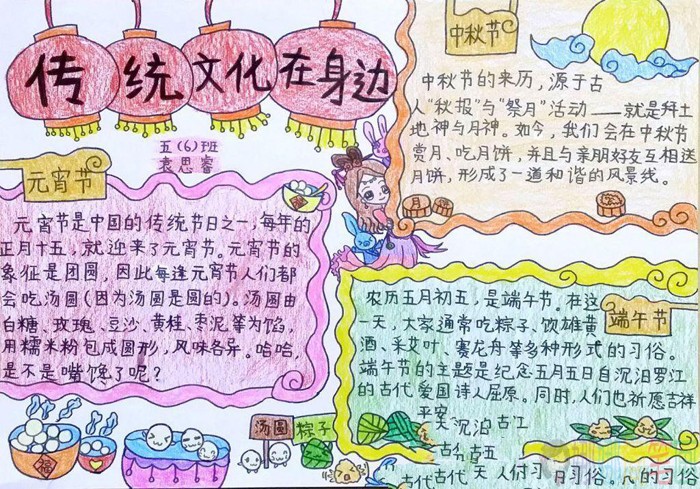 传统文化在身边
五(6)班
袁思睿
中秋节
中秋节的来历，源于古
人“秋报”与“祭月”活动——就是拜土
地神与月神。如今，我们会在中秋节
赏月、吃月饼，并且与亲朋好友互相送
月饼，形成了一道和谐的风景线。
月
元宵节
元宵节是中国的传统节日之一，每年的
正月十五，就迎来了元宵节。元宵节的
象征是团圆，因此每逢元宵节人们都
会吃汤圆（因为汤圆是圆的）。汤圆由
白糖、玫瑰、豆沙、黄桂、枣泥等为馅，
用糯米粉包成圆形，风味各异。哈哈，
是不是嘴馋了呢？
端午节
农历五月初五，是端午节。在这
一天，大家通常吃粽子、饮雄黄
酒、采艾叶、赛龙舟等多种形式的习俗。
端午节的主题是纪念五月五日自沉汨罗江
的古代爱国诗人屈原。同时，人们也祈愿吉祥
平安
沉汨 古江
古代 古五
古代古代天人们习日习俗。的习俗
汤圆
粽子
福